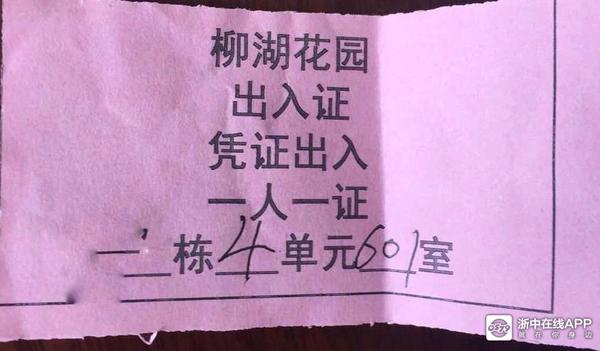 柳湖花园
出入证
凭证出入
一人一证
栋4单元601室
浙中在线APP
就在你身边